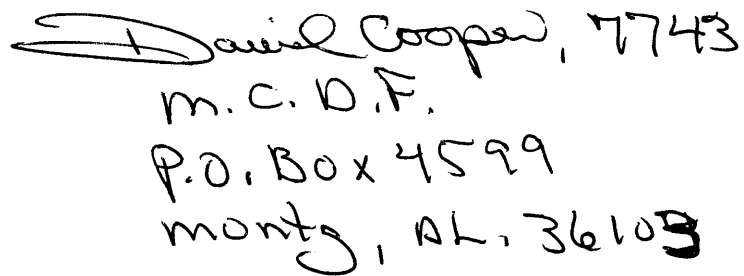 Daniel Cooper, 7743
M.C.D.F.
P.O. Box 4599
Montg, AL. 36103